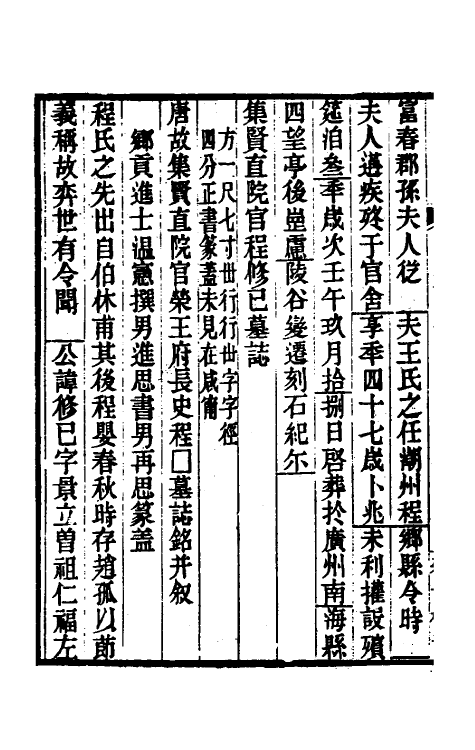 富春郡孫夫人従　夫王氏之任潮州程郷縣令時
夫人遘疾殁于官舍享秊四十七歳卜兆未利攉設殯
筵洎叁秊歳次壬午玖月拾捌日啓葬扵廣州南海縣
四望亭後崗慮陵谷變遷刻石紀尒
集賢直院官程修已墓誌
方一尺七寸丗行行丗字字徑
四分正書篆蓋未見在咸甯
唐故集賢直院官榮王府長史程□墓誌銘并叙
鄉貢進士温憲撰男進思書男再思篆蓋
程氏之先出自伯休甫其後程嬰春秋時存趙孤以節
義稱故弈世有令聞　公諱修已字景立曽祖仁福左